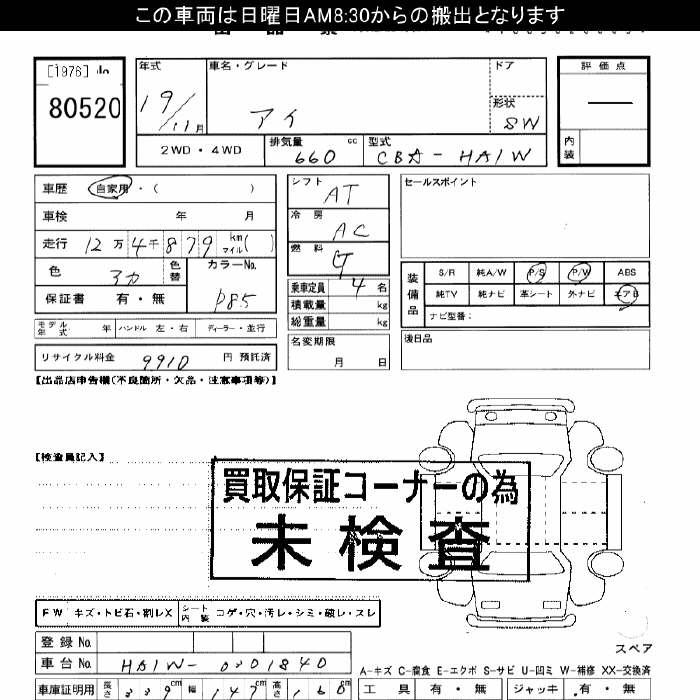 この車両は日曜日AM8:30からの搬出となります
[1976]
80520
年式 車名・グレード ドア 評価点
19/11月 アイ 形状 SW
2WD・4WD 排気量 660 cc 型式 CBA-HA1W 内装
車歴 自家用・( ) シフト AT セールスポイント
車検 年 月 冷房 AC
走行 12万4千879 km マイル( ) 燃料 G
色 アカ 色替 カラーNo. P85 装備品 S/R 純A/W P/S P/W ABS
保証書 有・無 乗車定員 4名 純TV 純ナビ 革シート 外ナビ エアB
積載量 kg ナビ型番:
モデル年式 年 ハンドル 左・右 ディーラー・並行 総重量 kg
リサイクル料金 9910 円 預託済 名変期限 月 日 後日品
【出品店申告欄(不良箇所・欠品・注意事項等)】
【検査員記入】
買取保証コーナーの為
未検査
FW キズ・トビ石・割レX シート内装 コゲ・穴・汚レ・シミ・破レ・スレ
登録No.
スペア
車台No. HA1W-0301840
A-キズ C-腐食 E-エクボ S-サビ U-凹ミ W-補修 XX-交換済
車庫証明用 長さ 339cm 幅 147cm 高さ 160cm 工具 有・無 ジャッキ 有・無